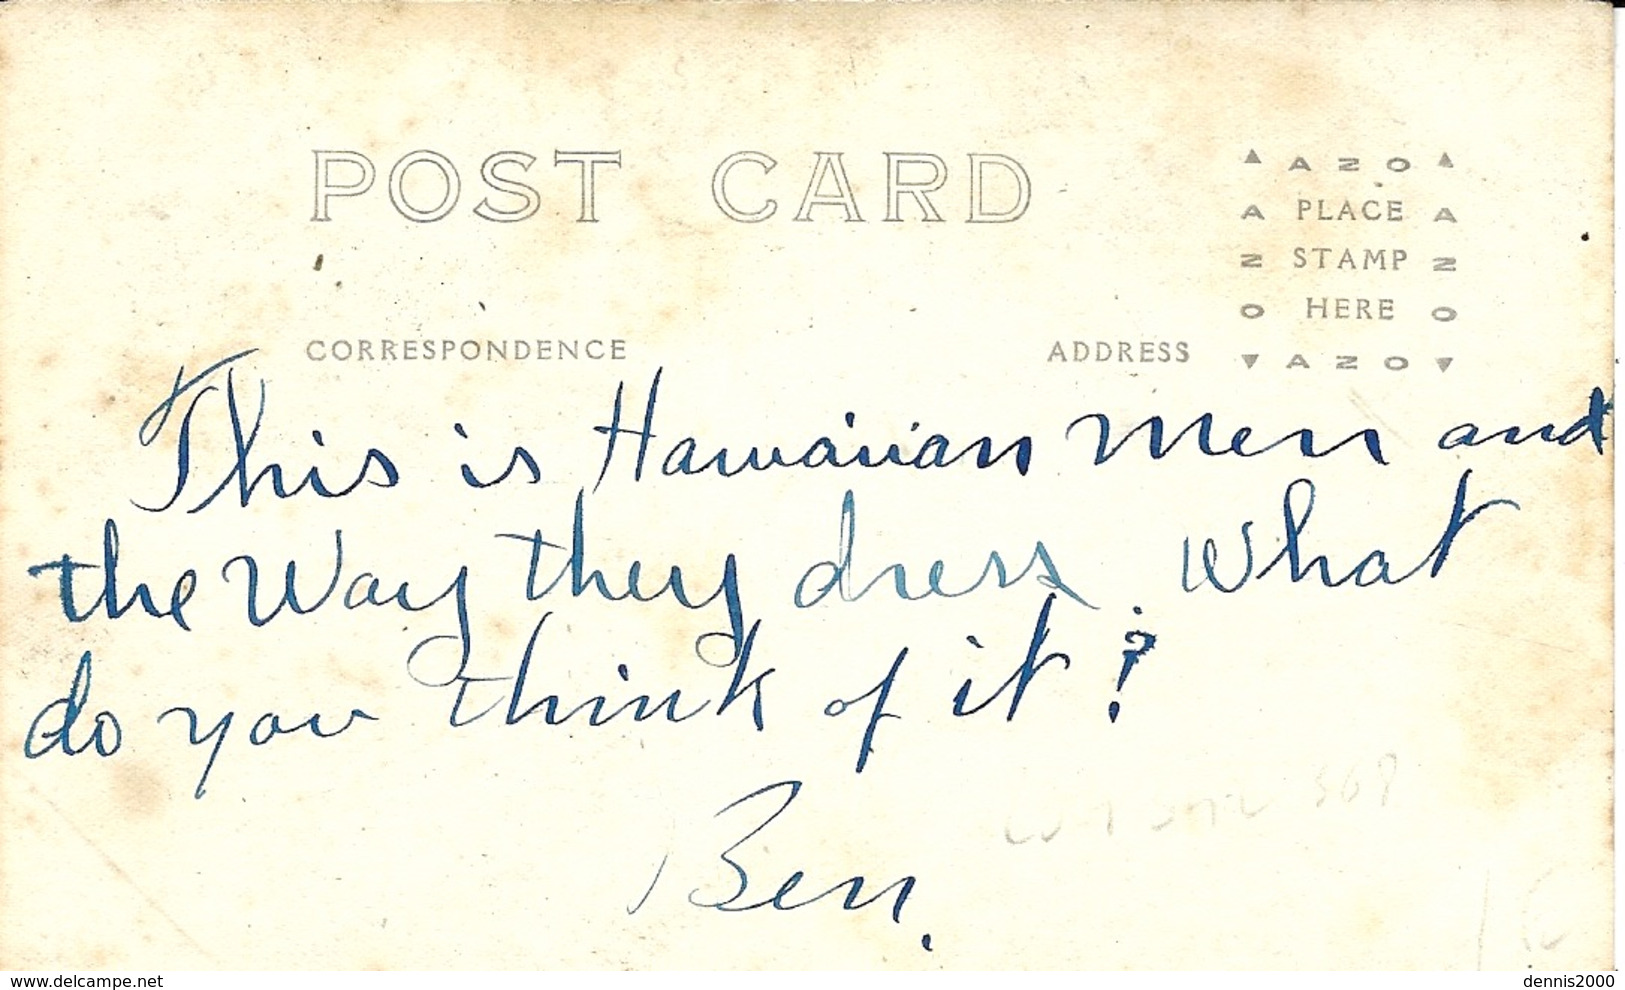 POST CARD
AZO
A PLACE A
Z STAMP Z
O HERE O
AZO
CORRESPONDENCE ADDRESS
This is Hawaiian men and
the Way they dress. What
do you think of it?
Ben.
delcampe.net dennis2000